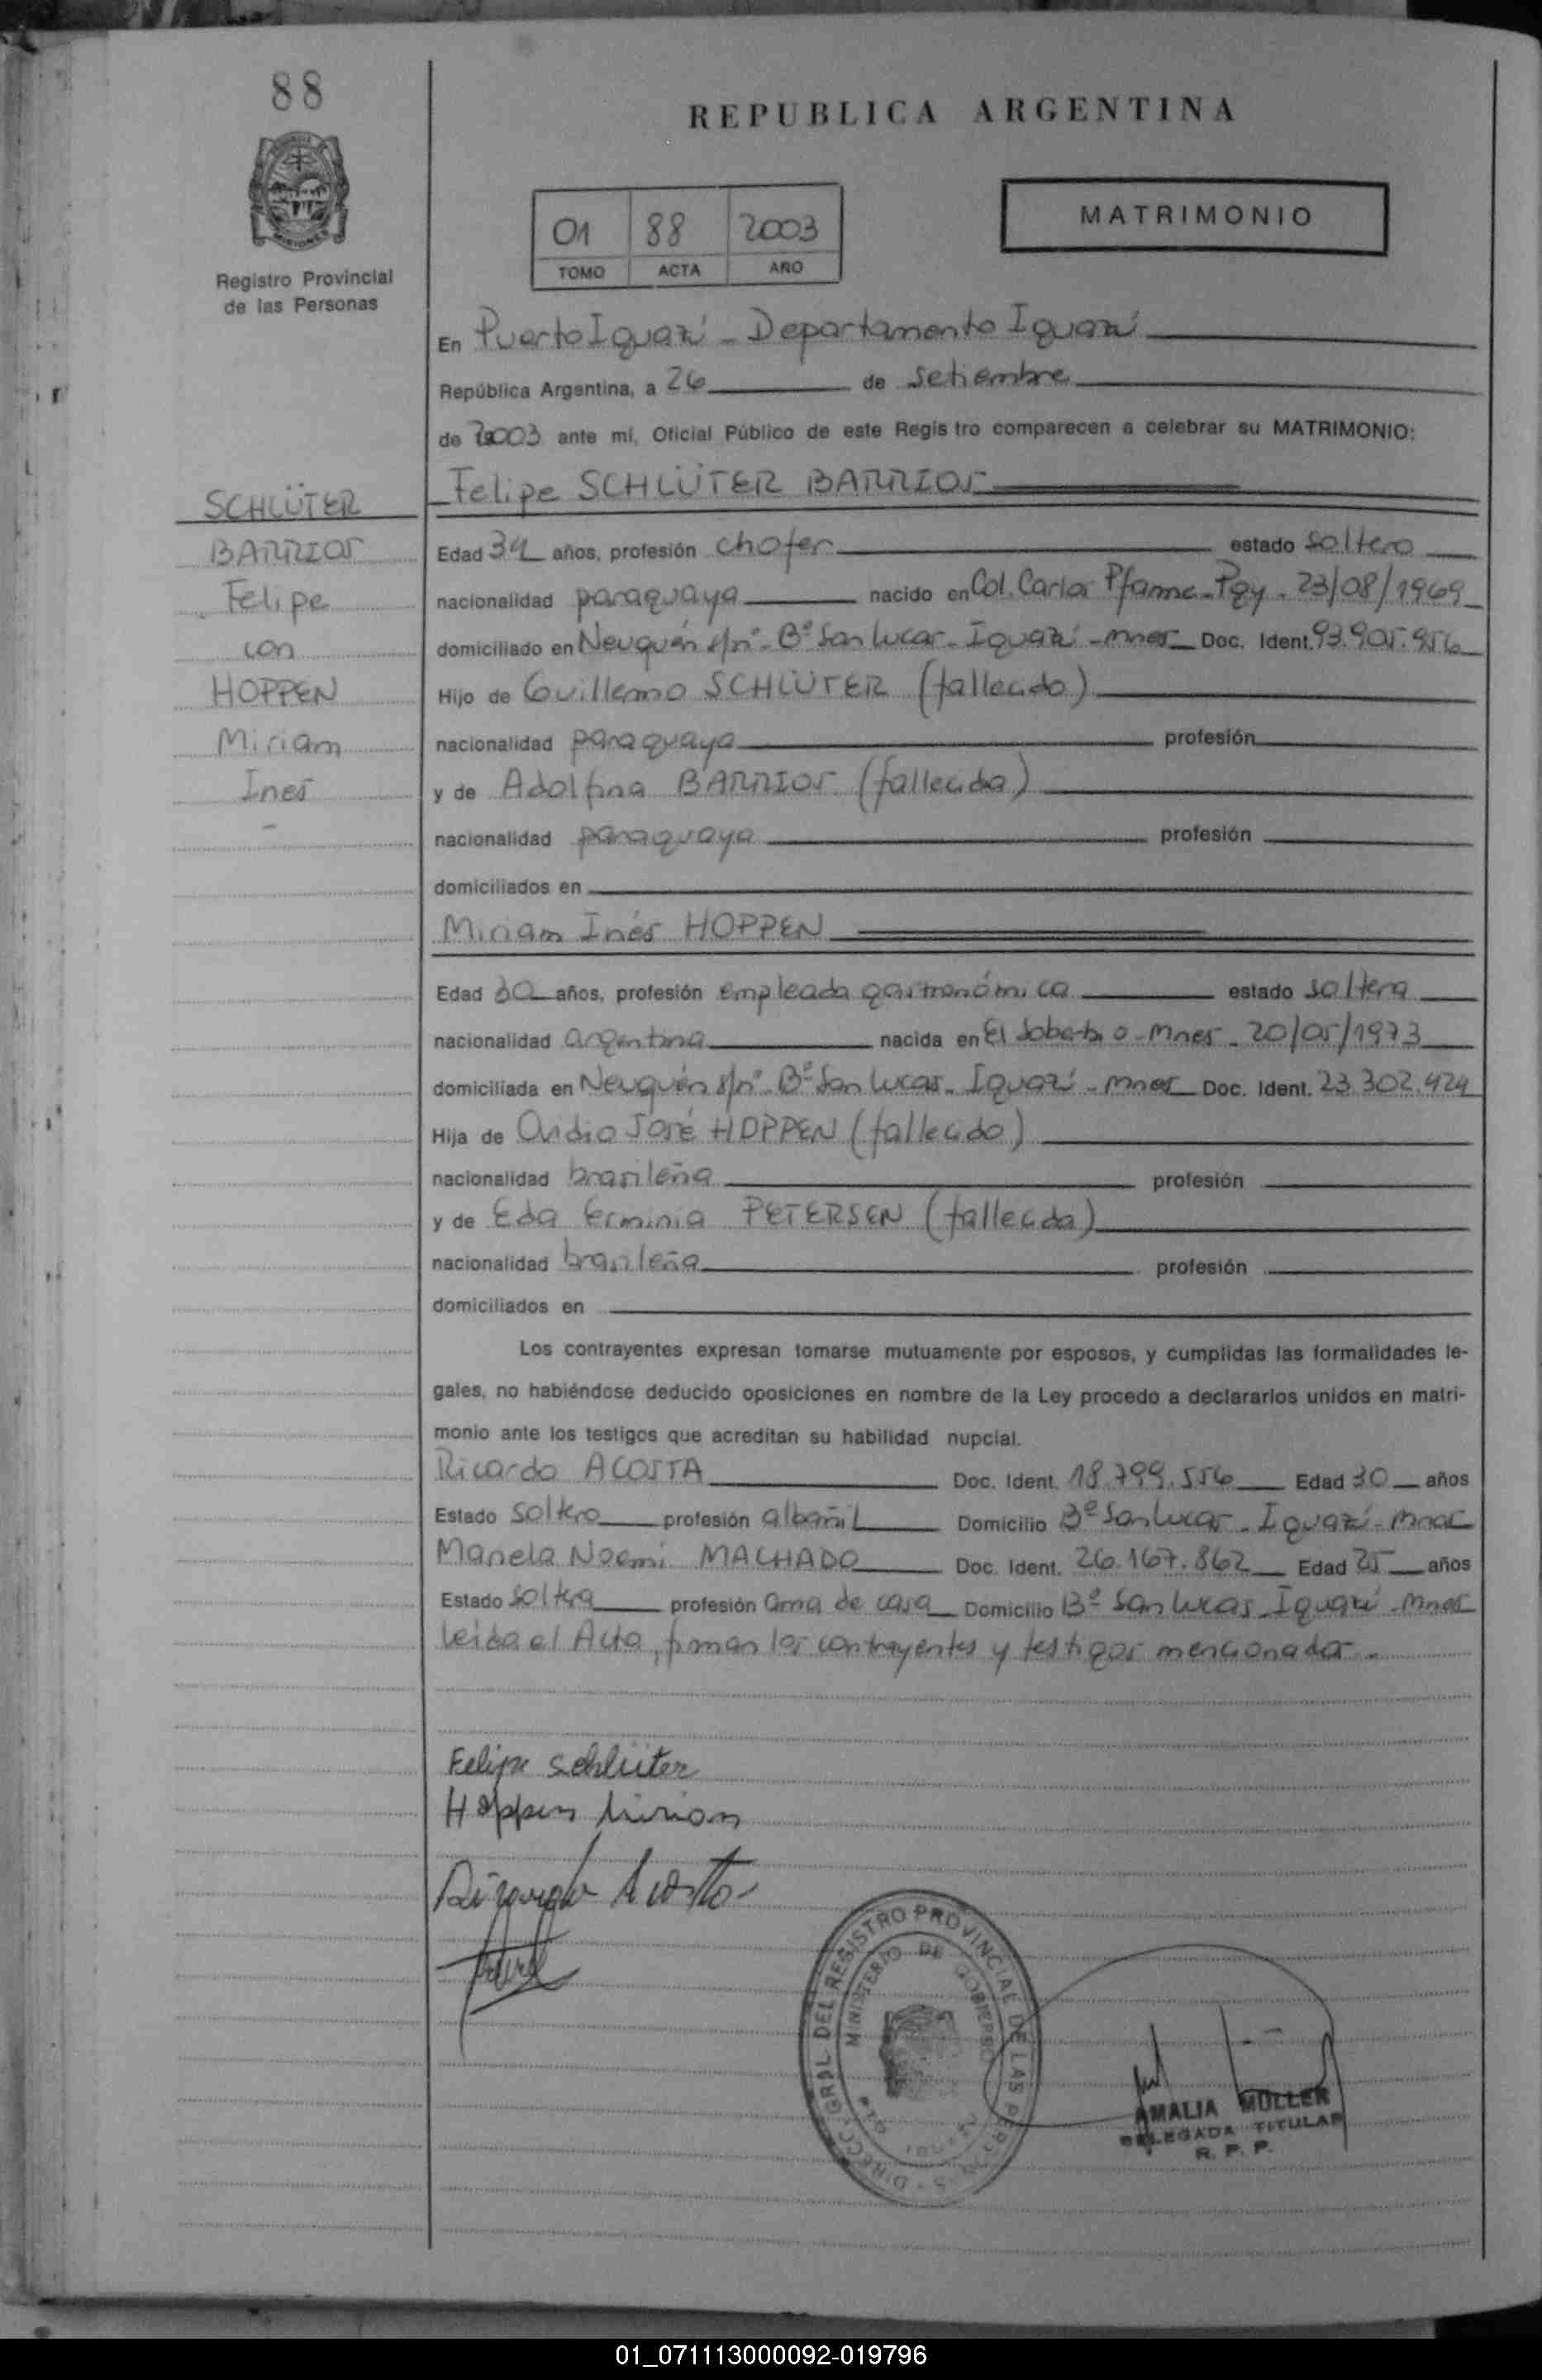 88
REPUBLICA ARGENTINA
MISIONES
Registro Provincial
de las Personas
01 88 2003
TOMO ACTA AÑO
MATRIMONIO
En Puerto Iguazú - Departamento Iguazú
República Argentina, a 26 de setiembre
de 2003 ante mí, Oficial Público de este Registro comparecen a celebrar su MATRIMONIO:
SCHLÜTER
BARRIOS
Felipe
con
HOPPEN
Miriam
Inés
-
Felipe SCHLÜTER BARRIOS
Edad 34 años, profesión chofer estado soltero
nacionalidad paraguaya nacido en Col. Carlos Pfanne - Pgy - 23/08/1969
domiciliado en Neuquén s/nº - Bº San Lucas - Iguazú - Mnes Doc. Ident. 93.905.956
Hijo de Guillermo SCHLÜTER (fallecido)
nacionalidad paraguaya profesión
y de Adolfina BARRIOS (fallecida)
nacionalidad paraguaya profesión
domiciliados en
Miriam Inés HOPPEN
Edad 30 años, profesión empleada gastronómica estado soltera
nacionalidad argentina nacida en El Soberbio - Mnes - 20/05/1973
domiciliada en Neuquén s/nº - Bº San Lucas - Iguazú - Mnes Doc. Ident. 23.302.424
Hija de José HOPPEN (fallecido)
nacionalidad brasileña profesión
y de Eda Erminia PETERSEN (fallecida)
nacionalidad brasileña profesión
domiciliados en
Los contrayentes expresan tomarse mutuamente por esposos, y cumplidas las formalidades le-
gales, no habiéndose deducido oposiciones en nombre de la Ley procedo a declararlos unidos en matri-
monio ante los testigos que acreditan su habilidad nupcial.
Ricardo ACOSTA Doc. Ident. 18.799.556 Edad 30 años
Estado soltero profesión albañil Domicilio Bº San Lucas - Iguazú - Mnes
Mariela Noemí MACHADO Doc. Ident. 26.167.862 Edad 25 años
Estado soltera profesión ama de casa Domicilio Bº San Lucas - Iguazú - Mnes
Leida el Acta, firman los contrayentes y testigos mencionados.-
Felipe Schlüter
Hoppen Mirian
Ricardo Acosta
DIRECC. GRAL. DEL REGISTRO PROVINCIAL DE LAS PERSONAS
MINISTERIO DE GOBIERNO
AMALIA MULLER
DELEGADA TITULAR
R. P. P.
01_071113000092-019796